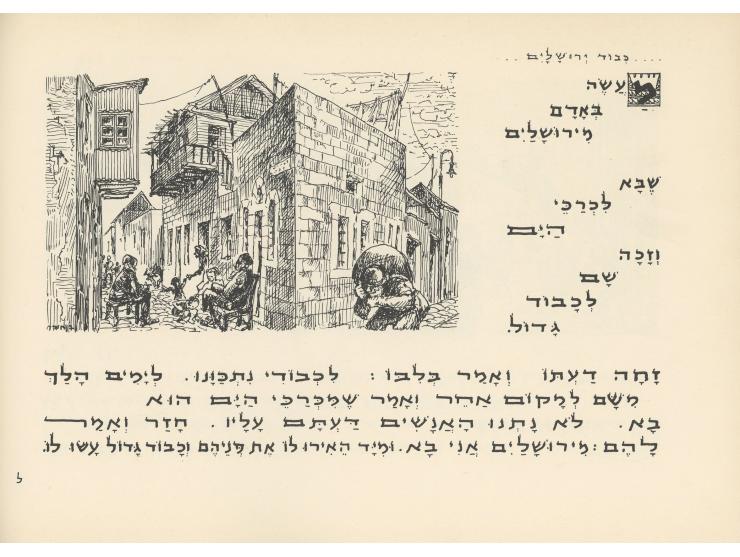 .... כְּבוֹד יְרוּשָׁלַיִם ....
מַעֲשֶׂה
בְּאָדָם
מִירוּשָׁלַיִם
שֶׁבָּא
לִכְרַכֵּי
הַיָּם
וְזָכָה
שָׁם
לְכָבוֹד
גָּדוֹל.
זָחָה דַּעְתּוֹ וְאָמַר בְּלִבּוֹ: לִכְבוֹדִי נִתְכַּוְּנוּ. לְיָמִים הָלַךְ
מִשָּׁם לְמָקוֹם אַחֵר וְאָמַר שֶׁמִּכְּרַכֵּי הַיָּם הוּא
בָּא. לֹא נָתְנוּ הָאֲנָשִׁים דַּעְתָּם עָלָיו. חָזַר וְאָמַר
לָהֶם: מִירוּשָׁלַיִם אֲנִי בָּא. וּמִיָּד הֵאִירוּ לוֹ אֶת פְּנֵיהֶם וְכָבוֹד גָּדוֹל עָשׂוּ לוֹ.
ל